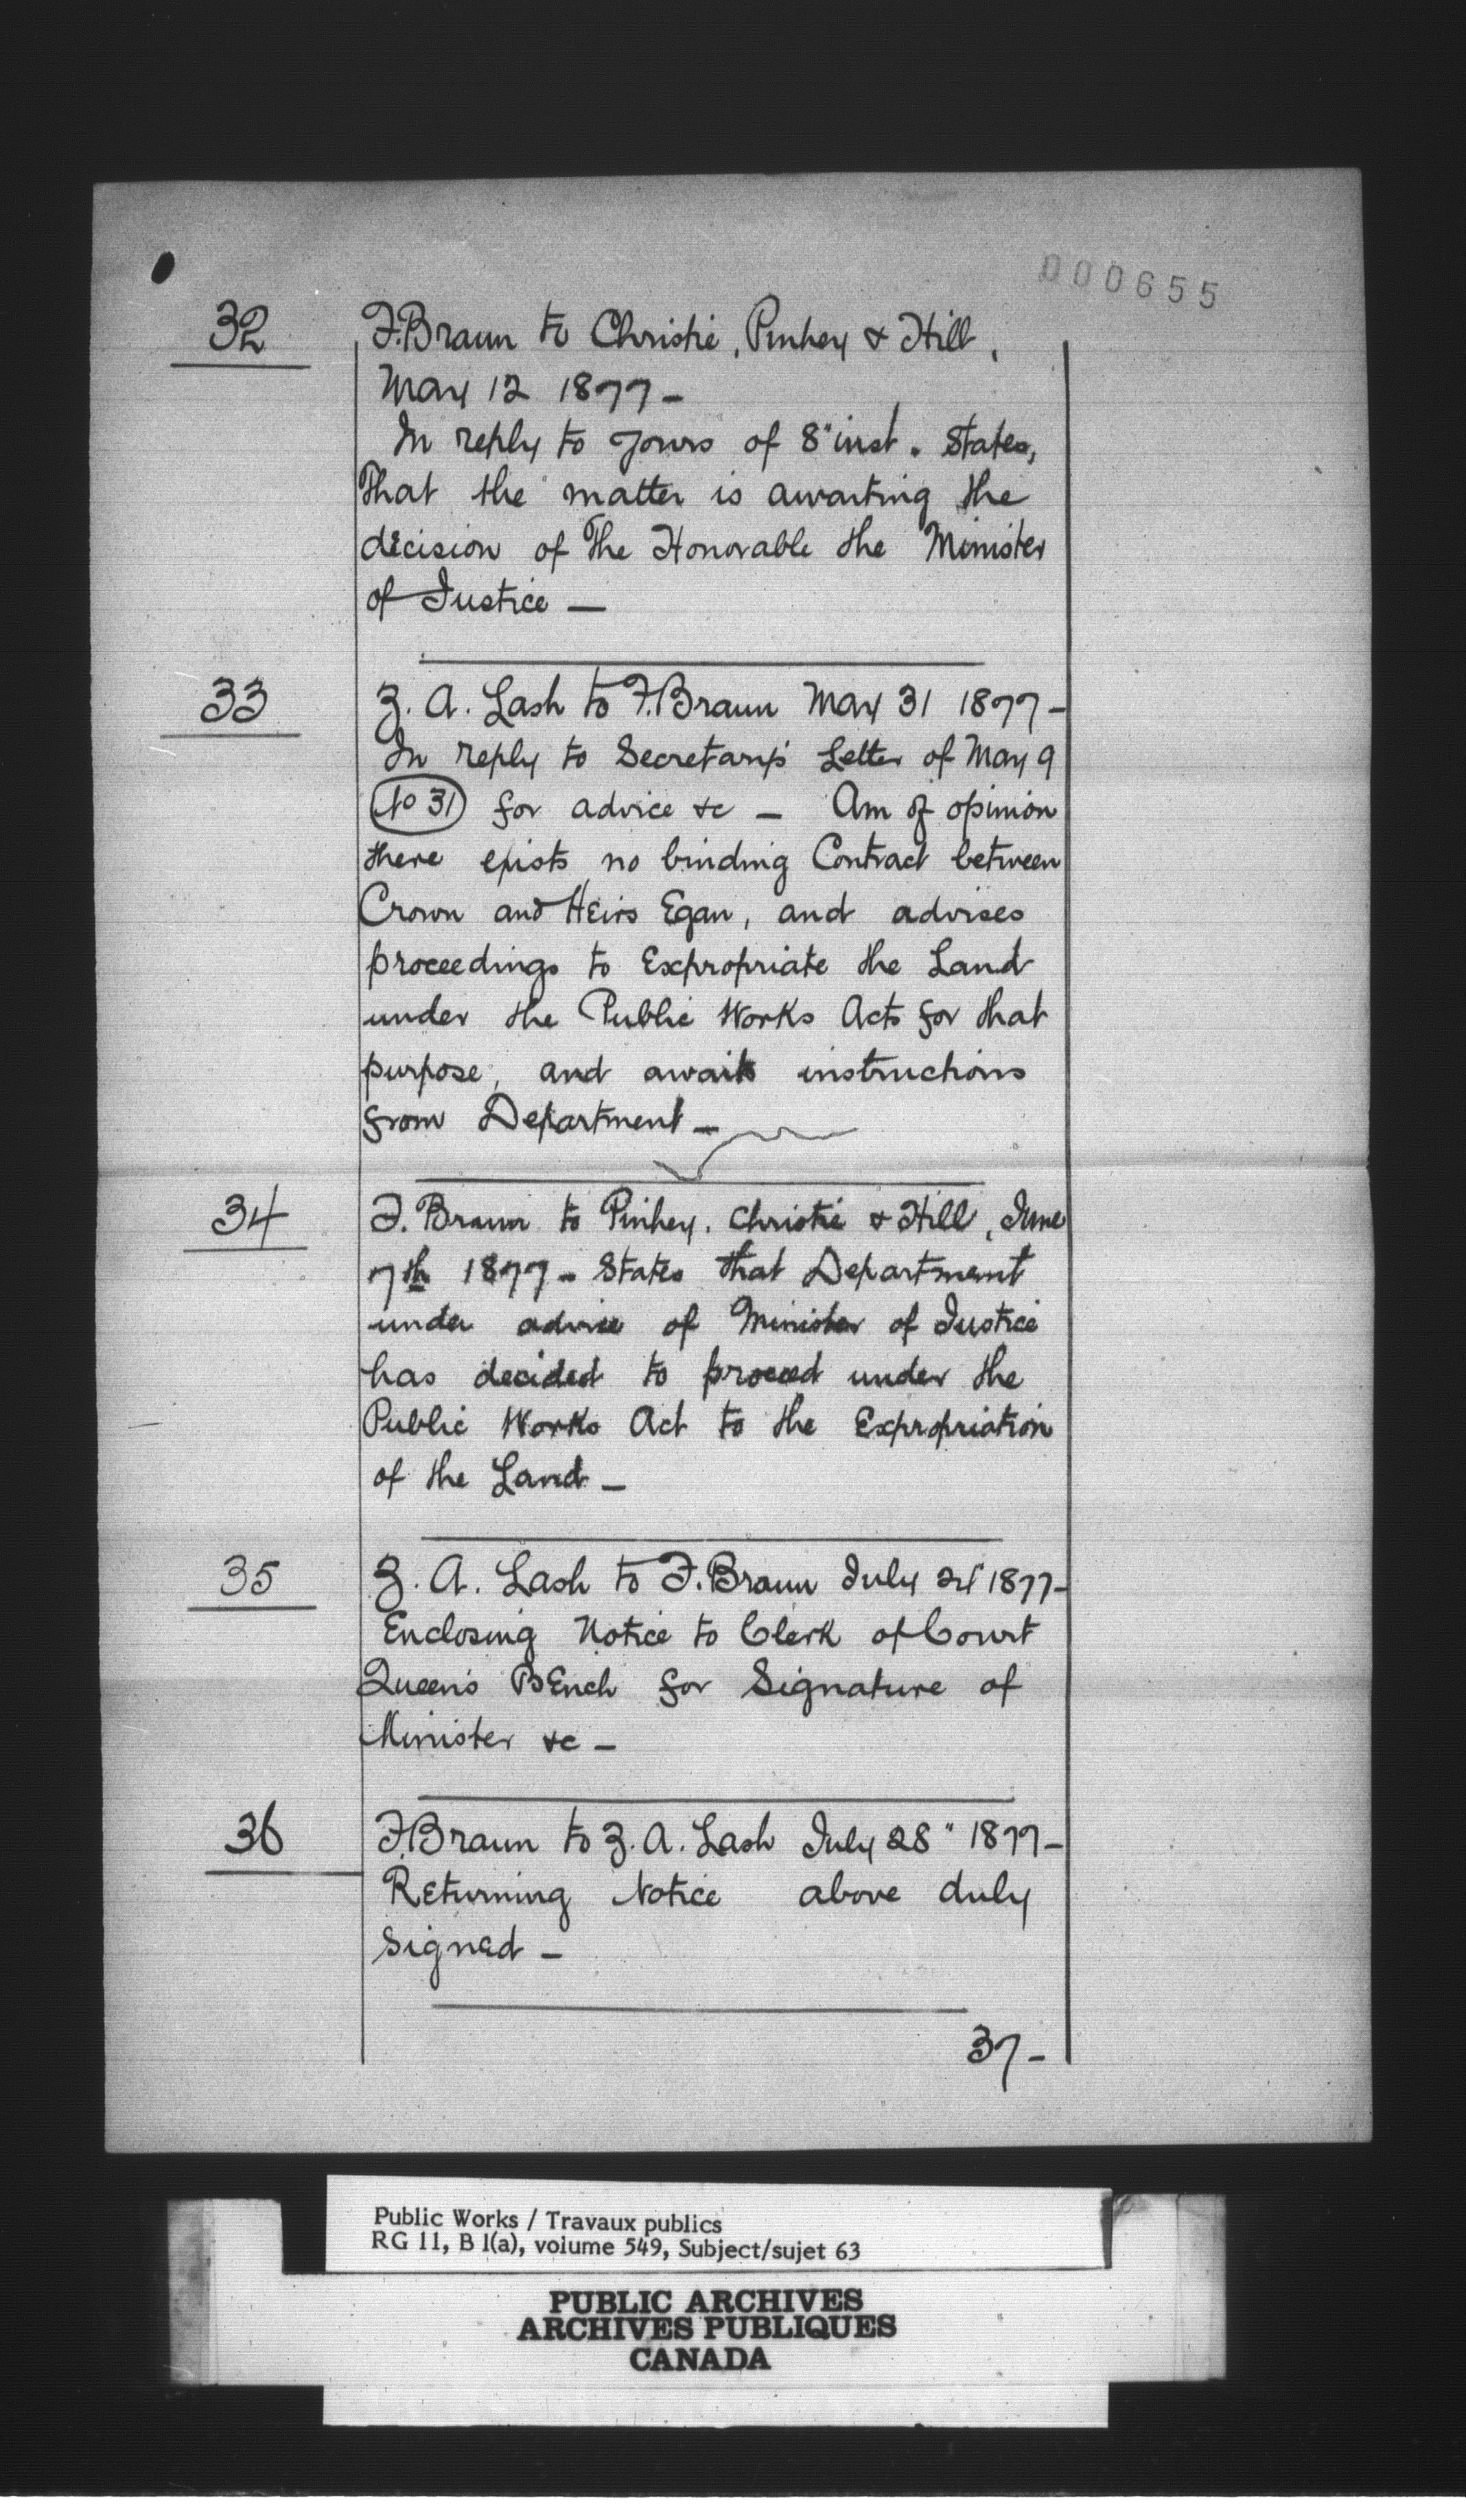 000655
32
F. Braun to Christie, Pinhey & Hill,
May 12 1877 -
In reply to yours of 8" inst. States,
That the matter is awaiting the
decision of The Honorable the Minister
of Justice —
33
Z. A. Lash to F. Braun May 31 1877 -
In reply to Secretary's Letter of May 9
No 31 for advice &c - Am of opinion
there exists no binding Contract between
Crown and Heirs Egan, and advises
proceedings to Expropriate the Land
under the Public Works Acts for that
purpose, and awaits instructions
from Department -
34
F. Braun to Pinhey, Christie & Hill, June
7th 1877 - States that Department
under advice of Minister of Justice
has decided to proceed under the
Public Works Act to the Expropriation
of the Land -
35
Z. A. Lash to F. Braun July 1877 -
Enclosing Notice to Clerk of Court
Queen's Bench for Signature of
Minister &c -
36
F. Braun to Z. A. Lash July 28" 1877 -
Returning Notice above duly
signed -
37 -
Public Works / Travaux publics
RG 11, B 1(a), volume 549, Subject/sujet 63
PUBLIC ARCHIVES
ARCHIVES PUBLIQUES
CANADA